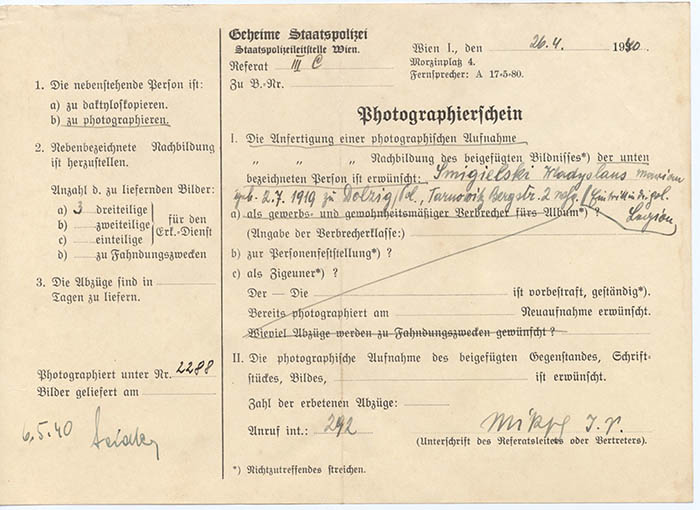 1. Die nebenstehende Person ist:
a) zu daktyloskopieren.
b) zu photographieren.
2. Nebenbezeichnete Nachbildung
ist herzustellen.
Anzahl d. zu liefernden Bilder:
a) 3 dreiteilige
b) zweiteilige
c) einteilige
für den
Erk.-Dienst
d) zu Fahndungszwecken
3. Die Abzüge sind in
Tagen zu liefern.
Photographiert unter Nr. 2288
Bilder geliefert am
6.5.40
Geheime Staatspolizei
Staatspolizeileitstelle Wien.
Referat III C
Zu B.-Nr.
Wien I., den 26.4. 1940.
Morzinplatz 4.
Fernsprecher: A 17-5-80.
Photographierschein
I. Die Anfertigung einer photographischen Aufnahme
„ „ Nachbildung des beigefügten Bildnisses*) der unten
bezeichneten Person ist erwünscht: Smigielski Wladyslaus Marian
geb. 2.7. 1919 zu Dolzig, Tarnowitz Bergstr. 2
a) als gewerbs- und gewohnheitsmäßiger Verbrecher fürs Album*) ? Legion
(Angabe der Verbrecherklasse:)
b) zur Personenfeststellung*) ?
c) als Zigeuner*) ?
Der — Die ist vorbestraft, geständig*).
Bereits photographiert am Neuaufnahme erwünscht.
Wieviel Abzüge werden zu Fahndungszwecken gewünscht ?
II. Die photographische Aufnahme des beigefügten Gegenstandes, Schrift-
stückes, Bildes, ist erwünscht.
Zahl der erbetenen Abzüge:
Anruf int.: 292
(Unterschrift des Referatsleiters oder Vertreters).
*) Nichtzutreffendes streichen.